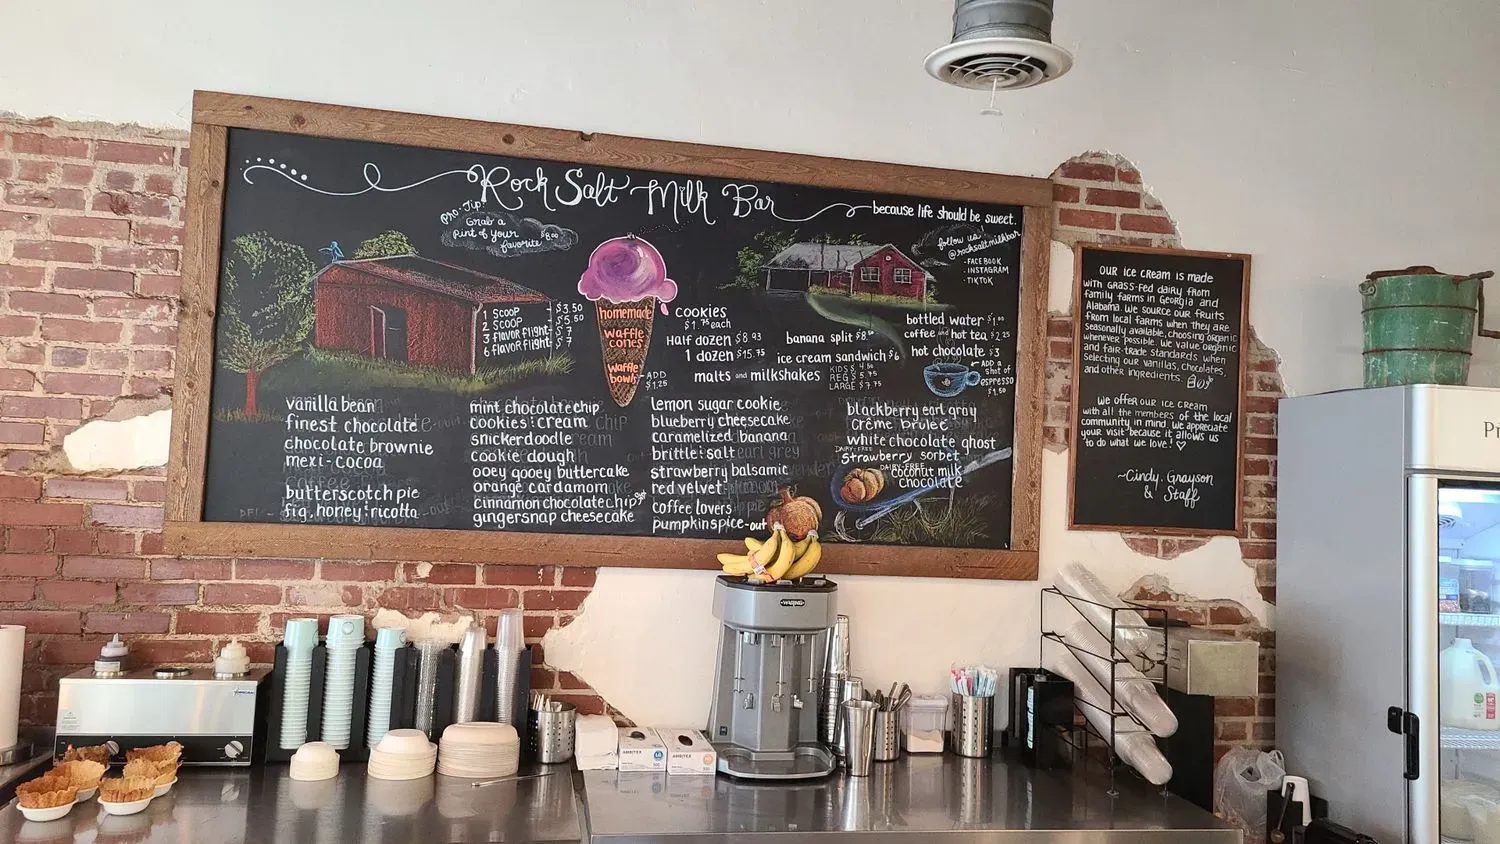 Rock Salt Milk Bar
because life should be sweet.
Pro-Tip:
Grab a
pint of your
favorite $8.00
follow us!
@rocksaltmilkbar
- FACEBOOK
- INSTAGRAM
- TIKTOK
1 SCOOP - $3.50
2 SCOOP $5.50
3 flavor flight - $7
6 flavor flight - $7
homemade
waffle
cones
&
waffle
bowls
ADD
$1.25
cookies
$1.75 each
Half dozen $8.93
1 dozen $15.75
malts and milkshakes
KIDS $4.50
REG $5.75
LARGE $7.75
banana split $8.50
ice cream sandwich $6
bottled water $1.00
coffee and hot tea $2.25
hot chocolate $3
ADD a
shot of
espresso
$1.50
vanilla bean
finest chocolate
chocolate brownie
mexi-cocoa
butterscotch pie
fig, honey & ricotta
mint chocolate chip
cookies & cream
snickerdoodle
cookie dough
ooey gooey buttercake
orange cardamom
cinnamon chocolate chip
gingersnap cheesecake
lemon sugar cookie
blueberry cheesecake
caramelized banana
brittle & salt
strawberry balsamic
red velvet
coffee lovers
pumpkin spice-out
blackberry earl gray
crème brulee
white chocolate ghost
DAIRY-FREE
strawberry sorbet
DAIRY-FREE
coconut milk
chocolate
OUR ICE CREAM IS MADE
WITH GRASS-FED DAIRY FROM
FAMILY FARMS IN GEORGIA AND
ALABAMA. WE SOURCE OUR FRUITS
FROM LOCAL FARMS WHEN THEY ARE
SEASONALLY AVAILABLE, CHOOSING ORGANIC
WHENEVER POSSIBLE. WE VALUE ORGANIC
AND FAIR-TRADE STANDARDS WHEN
SELECTING OUR VANILLAS, CHOCOLATES,
AND OTHER INGREDIENTS.
WE OFFER OUR ICE CREAM
WITH ALL THE MEMBERS OF THE LOCAL
COMMUNITY IN MIND. WE APPRECIATE
YOUR VISIT BECAUSE IT ALLOWS US
TO DO WHAT WE LOVE!
~Cindy, Grayson
& Staff
WARING
AMBITEX
AMBITEX